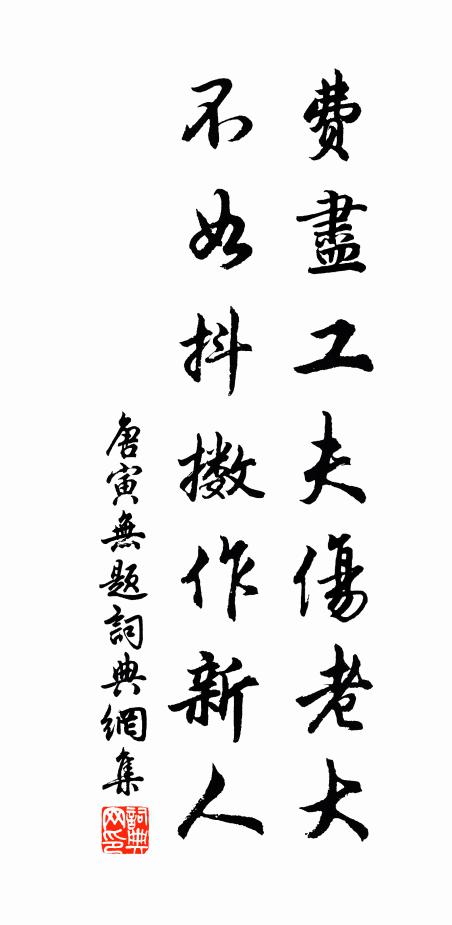 費盡工夫傷老大
不如抖擻作新人
唐寅無題詞典網集
詞典網印